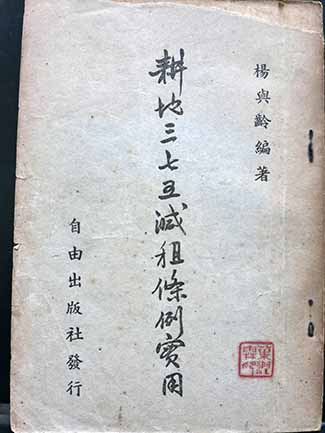 楊與齡編著
耕地三七五減租條例實用
自由出版社發行